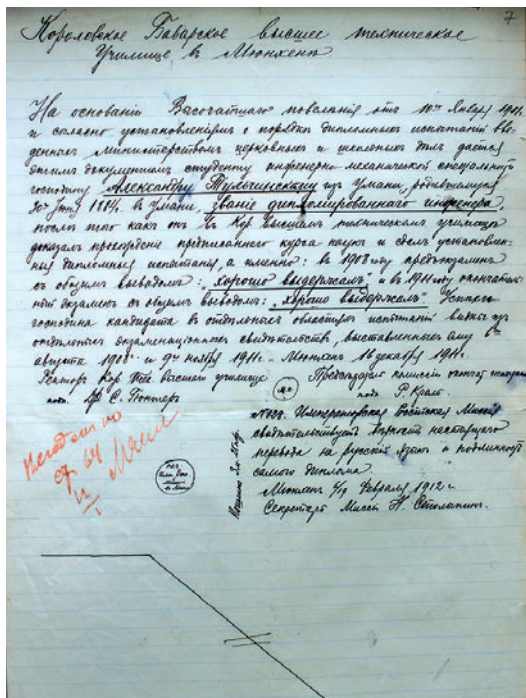 7
Королевское Баварское высшее техническое
Училище въ Мюнхенѣ
На основаніи Высочайшаго повелѣнія отъ 10го Января 1901г.
и согласно установленіямъ о порядкѣ дипломныхъ испытаній вве-
денныхъ министерствомъ церковныхъ и школьныхъ дѣлъ дается
этимъ документомъ студенту инженерно механической спеціальности
господину Александру Тульчинскому изъ Умани, родившемуся
въ Умани, званіе дипломированнаго инженера,
послѣ того какъ онъ въ Кор. Высшемъ техническомъ училищѣ
доказалъ прохожденіе предписаннаго курса наукъ и сдалъ установлен-
ныя дипломныя испытанія, а именно: въ 1908 году предъэкзаменъ
съ общимъ выводомъ: "хорошо выдержалъ" и въ 1911 году окончатель-
ный экзаменъ съ общимъ выводомъ: "хорошо выдержалъ". Успѣхи
господина кандидата въ отдѣльныхъ областяхъ испытаній видны изъ
отдѣльныхъ экзаменаціонныхъ свидѣтельствъ, выставленныхъ ему 6го
августа 1908 и 9го ноября 1911г. Мюнхенъ 16 декабря 1911г.
Ректоръ Кор. Тех. Высшаго училища
Предсѣдатель комиссіи окончат. испытаній
подп.
подп. Р. Кроль
№ Императорская Россійская Миссія
свидѣтельствуетъ вѣрность настоящаго
перевода на русскій языкъ и подлинность
самого диплома
Мюнхенъ Февраля 1912г.
Секретарь Миссіи Н. Столыпинъ.